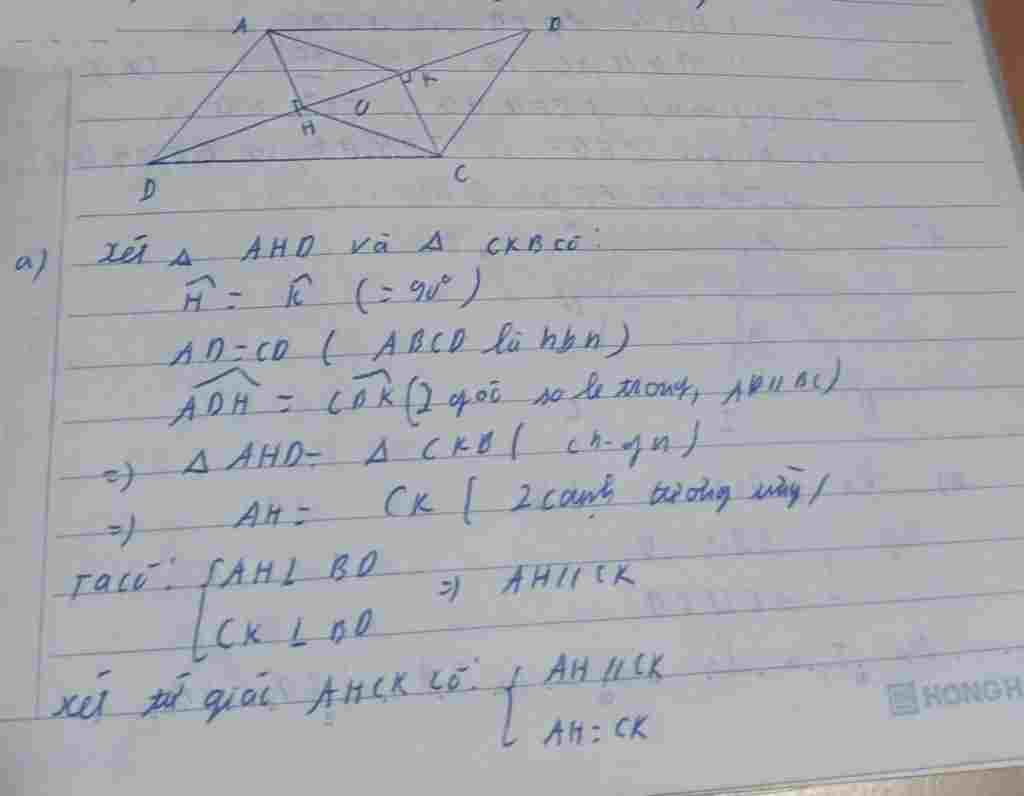 A B
K
O
H
D C
a) Xét Δ AHD và Δ CKB có:
Ĥ = K̂ (= 90°)
AD = CD ( ABCD là hbh)
ADH = CDK (2 góc so le trong, AD // BC)
=) Δ AHD = Δ CKB ( ch-gn)
=) AH = CK ( 2 cạnh tương ứng)
Ta có: { AH ⊥ BD => AH // CK
CK ⊥ BD
Xét tứ giác AHCK có: { AH // CK
AH = CK
HONGH